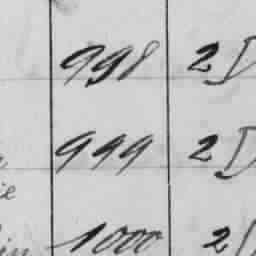 998 2 D
999 2 D
ie
1000 2